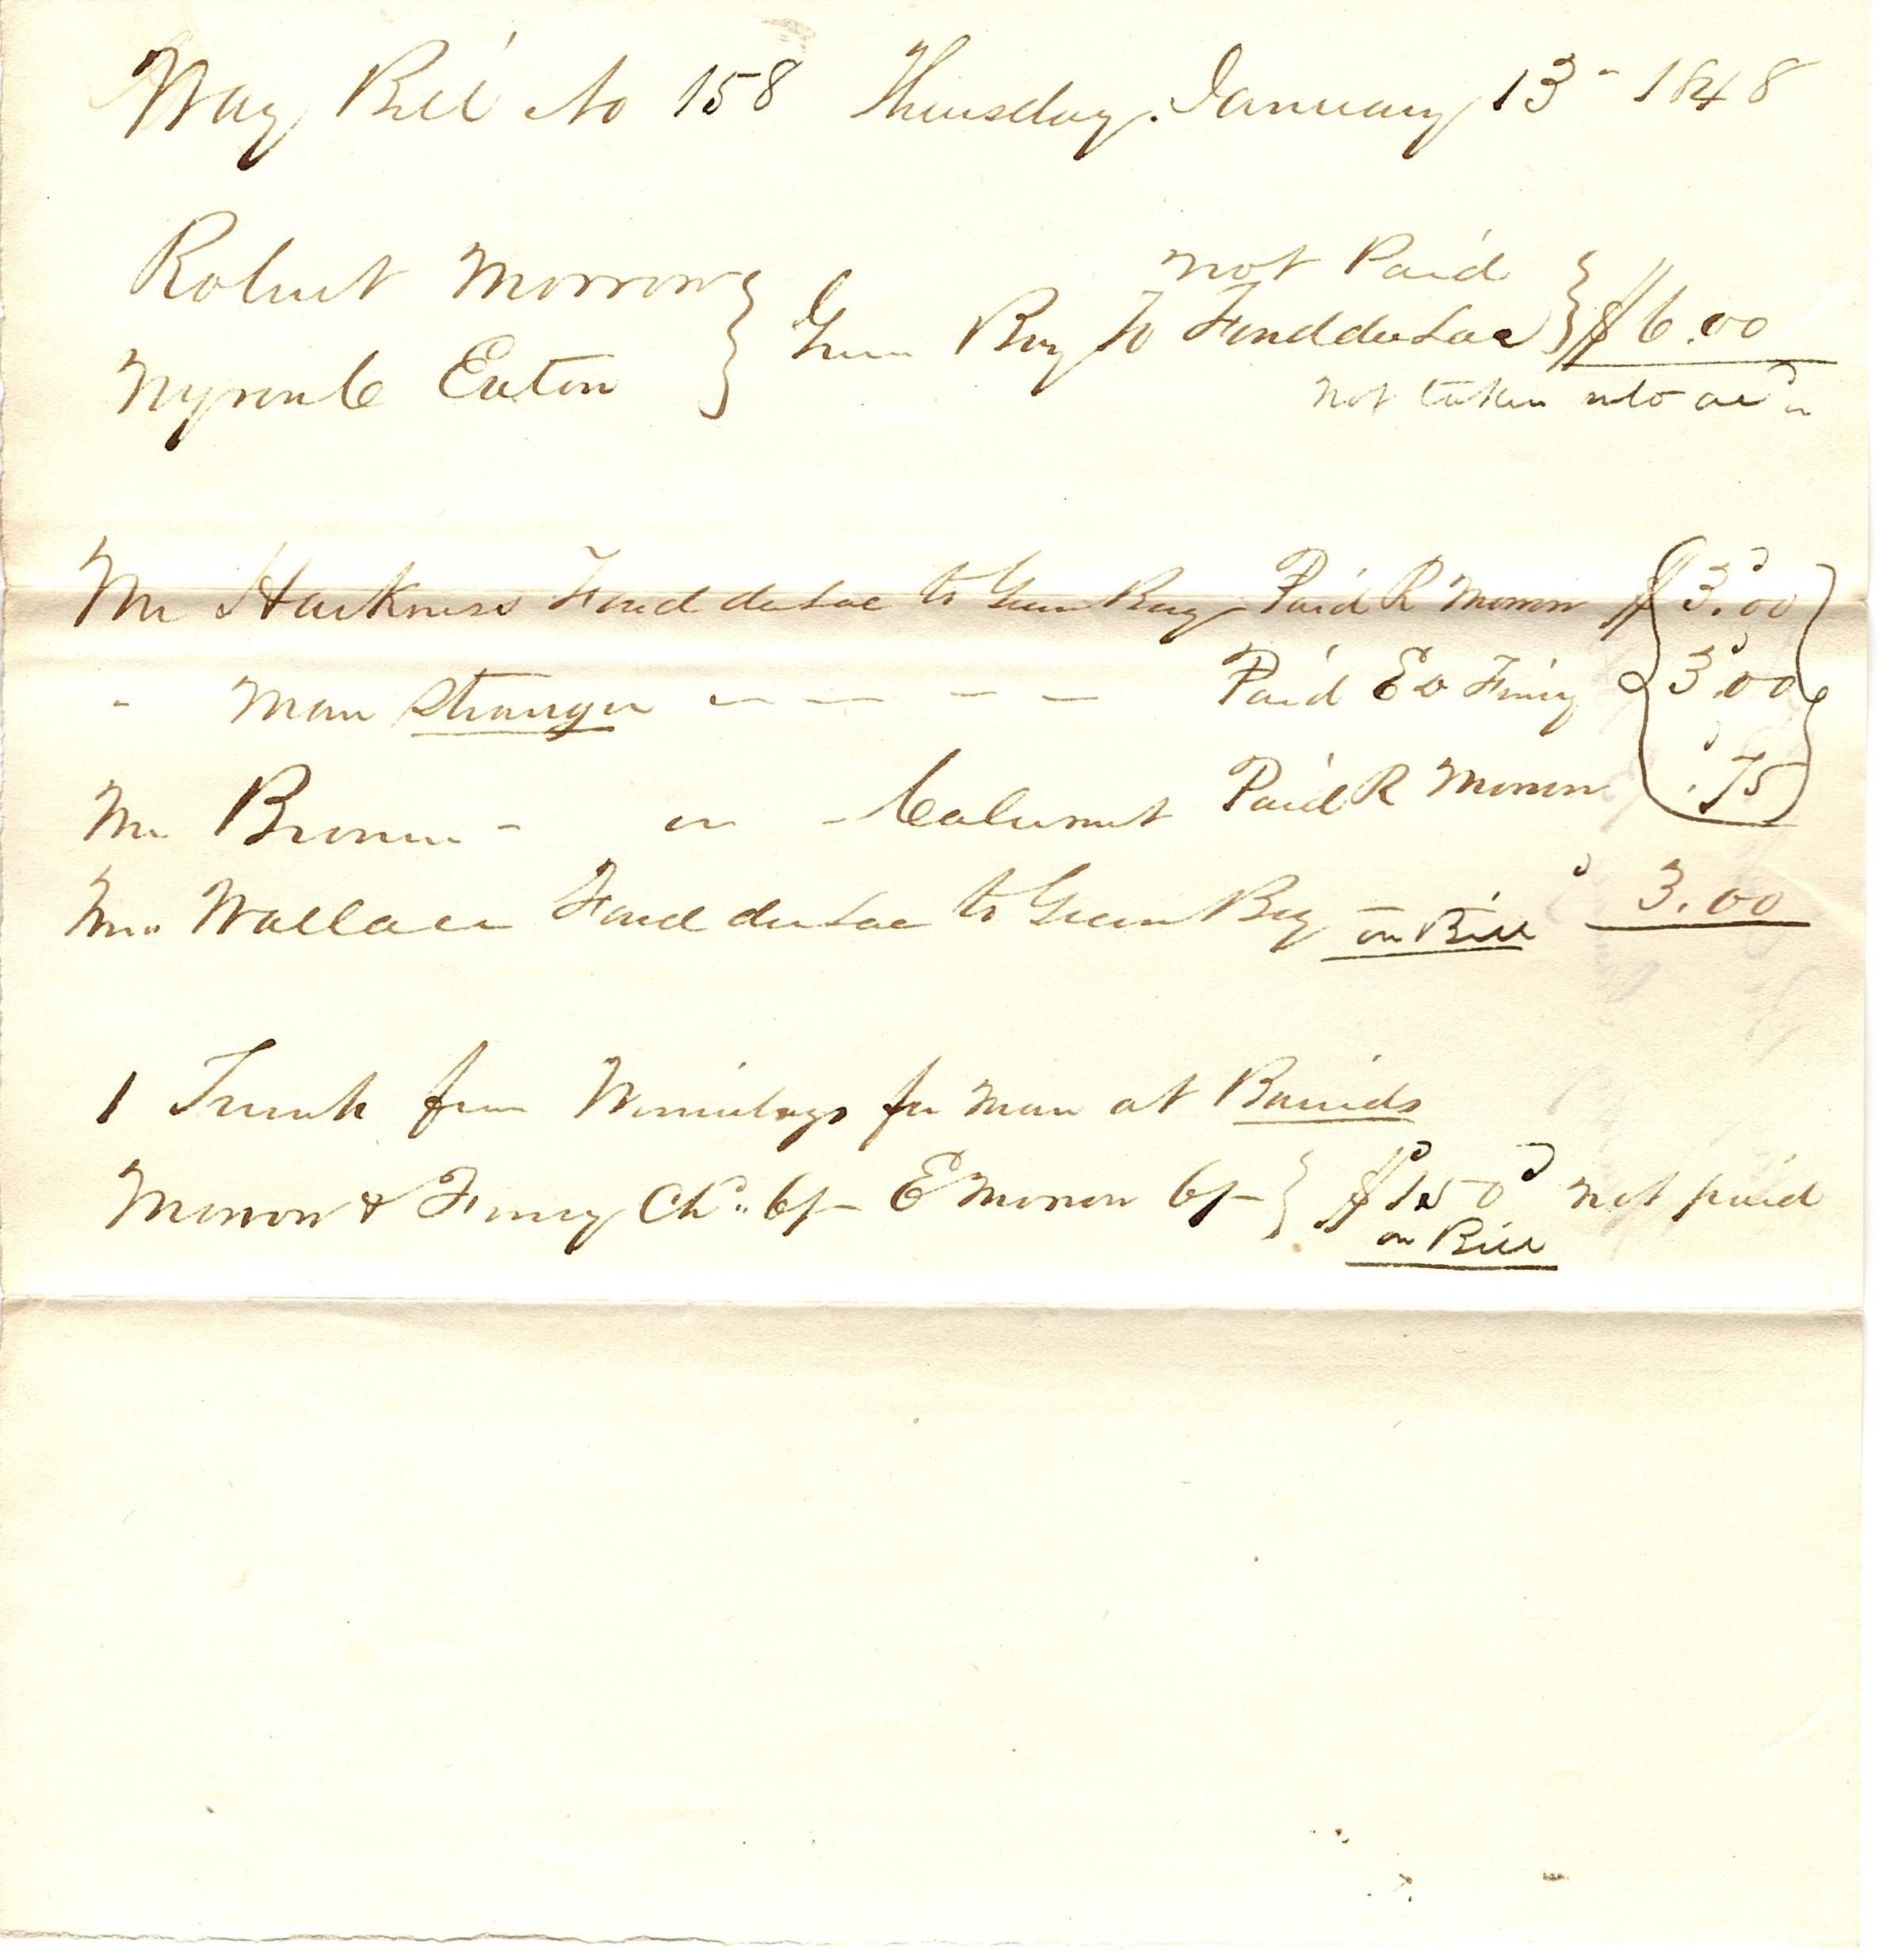 Way Bill No 158 Thursday, January 13 - 1848
Robert Morrow } Green Bay to Fond du Lac not Paid } $6.00
Eaton
not taken into
Mr Harkness Fond du Lac to Green Bay Paid R Morrow $3.00
" Man Stranger — — — — Paid Finey 3.00
Mr Brown - " - Calumet Paid R Morrow .75
Wallace Fond du Lac to Green Bay — on Bill 3.00
1 Trunk from for man at
Morrow & Finey Chd. 6/- E Morrow 6/- } $1.50 not paid
on Bill